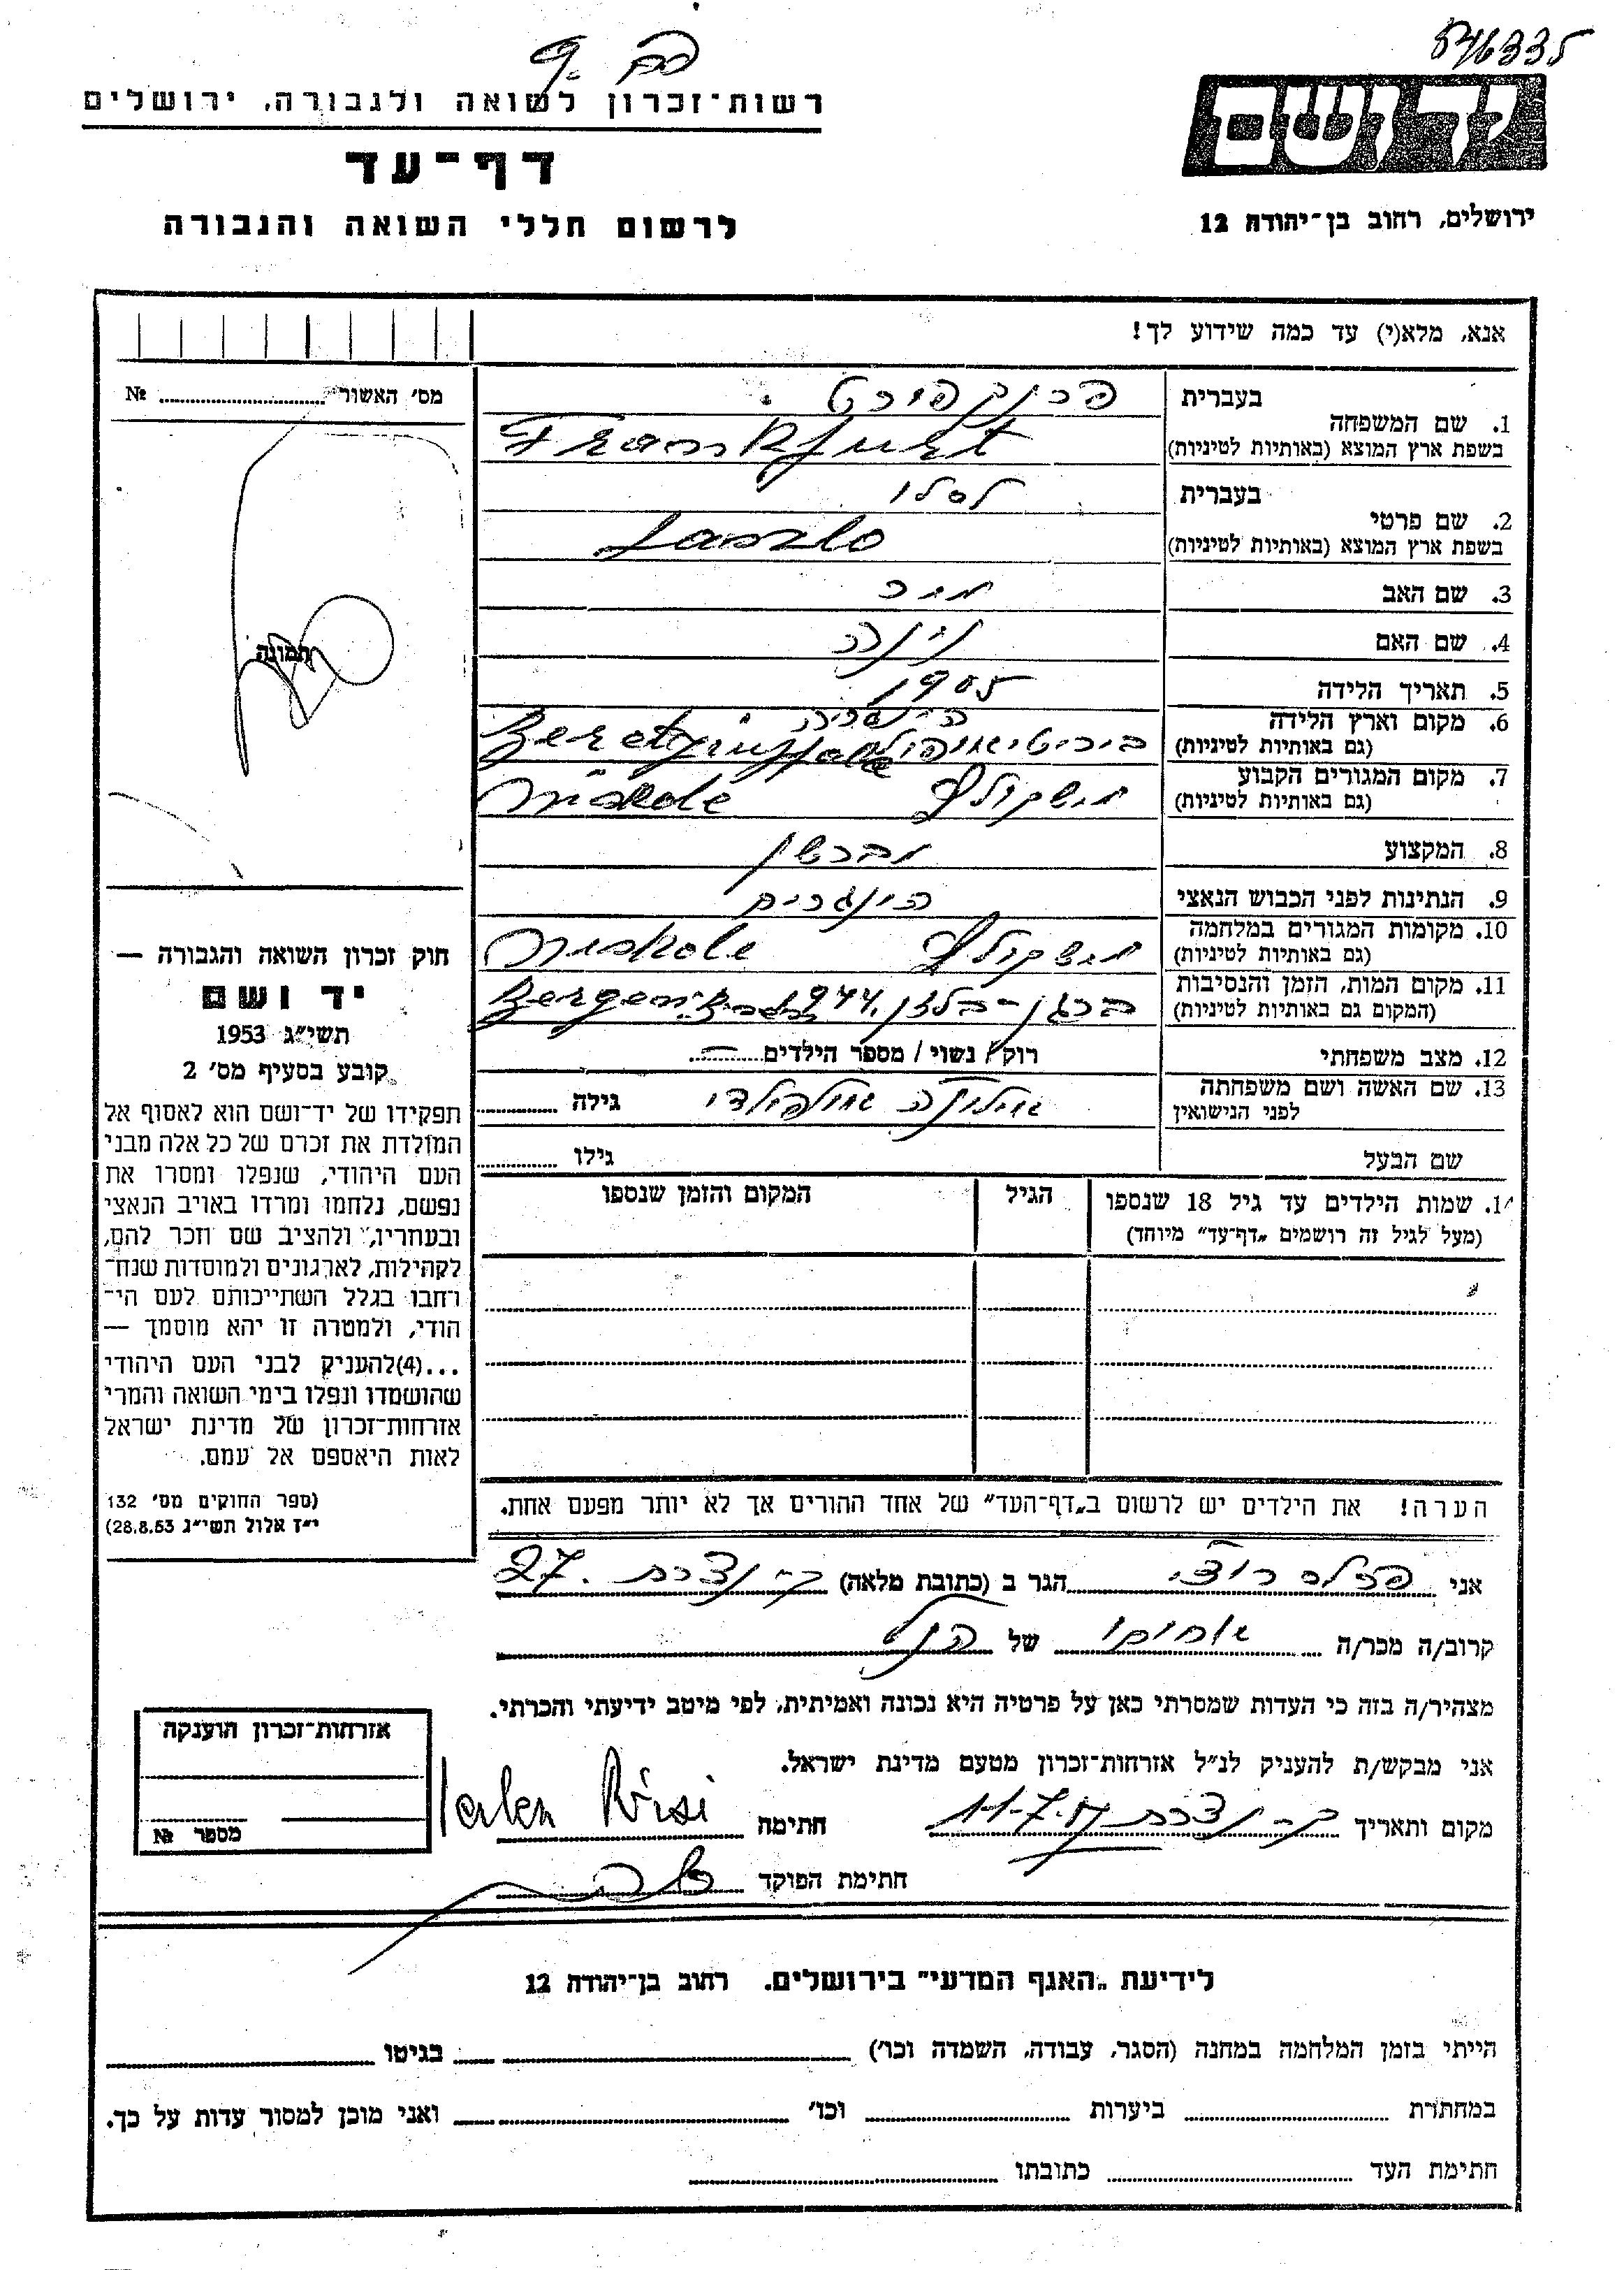 546335
רשות-זכרון לשואה ולגבורה, ירושלים
דף-עד
לרשום חללי השואה והגבורה
ידושם
ירושלים, רחוב בן-יהודה 12
אנא, מלא(י) עד כמה שידוע לך!
מס׳ האשור № 
1. שם המשפחה בעברית פרנקפורט
בשפת ארץ המוצא (באותיות לטיניות) Frankfurt
2. שם פרטי בעברית לסלו
בשפת ארץ המוצא (באותיות לטיניות) Laszlo
3. שם האב
4. שם האם
5. תאריך הלידה 1905
6. מקום וארץ הלידה הונגריה
(גם באותיות לטיניות)
7. מקום המגורים הקבוע מישקולץ
(גם באותיות לטיניות) Miskolc
8. המקצוע
9. הנתינות לפני הכבוש הנאצי הונגרית
10. מקומות המגורים במלחמה מישקולץ
(גם באותיות לטיניות) Miskolc
11. מקום המות, הזמן והנסיבות ברגן-בלזן 1944
(המקום גם באותיות לטיניות) Bergen
12. מצב משפחתי רווק / נשוי / מספר הילדים
13. שם האשה ושם משפחתה
לפני הנישואין אילונה גילה
שם הבעל גילו
14. שמות הילדים עד גיל 18 שנספו הגיל המקום והזמן שנספו
(מעל לגיל זה רושמים „דף-עד״ מיוחד)
תמונה
חוק זכרון השואה והגבורה —
יד ושם
תשי״ג 1953
קובע בסעיף מס׳ 2
תפקידו של יד-ושם הוא לאסוף אל
המולדת את זכרם של כל אלה מבני
העם היהודי, שנפלו ומסרו את
נפשם, נלחמו ומרדו באויב הנאצי
ובעוזריו, ולהציב שם וזכר להם,
לקהילות, לארגונים ולמוסדות שנח-
רבו בגלל השתייכותם לעם הי-
הודי, ולמטרה זו יהא מוסמך —
...(4) להעניק לבני העם היהודי
שהושמדו ונפלו בימי השואה והמרי
אזרחות-זכרון של מדינת ישראל
לאות היאספם אל עמם.
(ספר החוקים מס׳ 132
י״ז אלול תשי״ג 28.8.53)
הערה! את הילדים יש לרשום ב„דף-העד״ של אחד ההורים אך לא יותר מפעם אחת.
אני רוזי הגר ב (כתובת מלאה) ק. נצרת 27
קרוב/ה מכר/ה אחותו של הנ״ל
מצהיר/ה בזה כי העדות שמסרתי כאן על פרטיה היא נכונה ואמיתית, לפי מיטב ידיעתי והכרתי.
אני מבקש/ת להעניק לנ״ל אזרחות-זכרון מטעם מדינת ישראל.
מקום ותאריך ק. נצרת חתימה Rózsi
חתימת הפוקד
אזרחות-זכרון הוענקה
מספר №
לידיעת „האגף המדעי״ בירושלים, רחוב בן-יהודה 12
הייתי בזמן המלחמה במחנה (הסגר, עבודה, השמדה וכו׳) בגיטו
במחתרת ביערות וכו׳ ואני מוכן למסור עדות על כך.
חתימת העד כתובתו